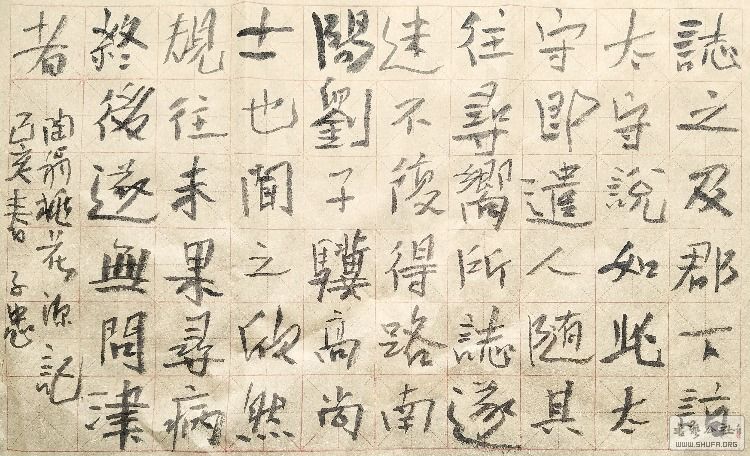 誌之及郡下詣
太守說如此太
守即遣人随其
往尋嚮所誌遂
迷不復得路南
陽劉子驥高尚
士也聞之欣然
規往未果尋病
終後遂無問津
者
陶桃花源記
己亥書 子忠
WWW.SHUFA.ORG